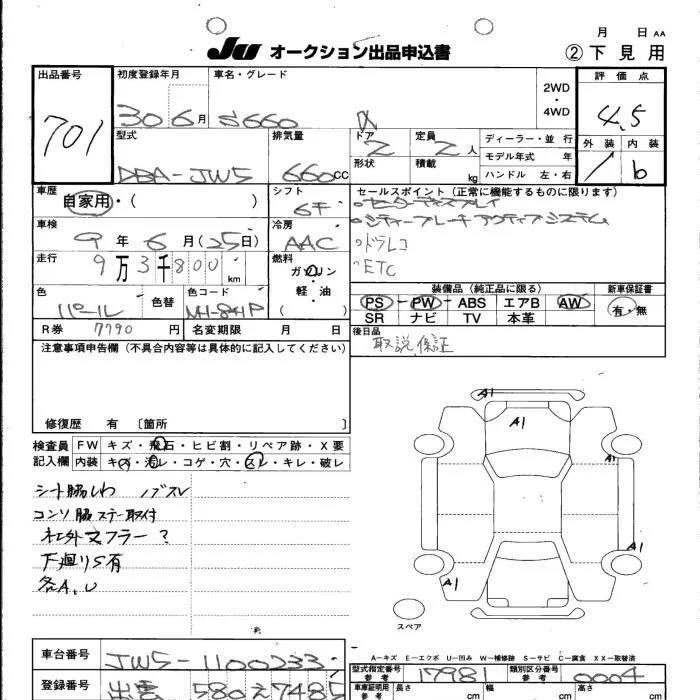 月 日 AA
JU オークション出品申込書 ②下見用
出品番号 初度登録年月 車名・グレード 2WD・4WD 評価点
701 30 6月 S660 α 4.5
型式 排気量 ドア 2 定員 2人 ディーラー・並行 外装 内装
DBA-JW5 660cc 形状 積載 kg モデル年式 年 b
ハンドル 左・右
車歴 自家用・( ) シフト 6F セールスポイント(正常に機能するものに限ります)
○センターディスプレイ
車検 9年6月(25日) 冷房 AAC ○シティーブレーキアクティブシステム
○ドラレコ
走行 9万3千800km 燃料 ガソリン・軽・油 ( ) ○ETC
装備品(純正品に限る) 新車保証書
色 パール 色替 色コード PS-PW-ABS エアB AW 有・無
SR ナビ TV 本革
R券 7790円 名変期限 月 日 後日品 取説 保証
注意事項申告欄(不具合内容等は具体的に記入してください)
修復歴 有 〔箇所 〕
検査員 FW キズ・飛石・ヒビ割・リペア跡・X要
記入欄 内装 キズ・汚レ・コゲ・穴・スレ・キレ・破レ
A1
A1
A1
A1
A1
シート脇しわ ノブスレ
コンソ脇ステー取付
社外マフラー?
下廻りS有
各A,U
スペア
A-キズ E-エクボ U-凹み W-補修跡 S-サビ C-腐食 XX-取替済
車台番号 JW5-1100233 型式指定番号 参考 17981 類別区分番号 参考 0004
登録番号 出雲 580 え 7485 車車証明用 参考 長さ cm 幅 cm 高さ cm